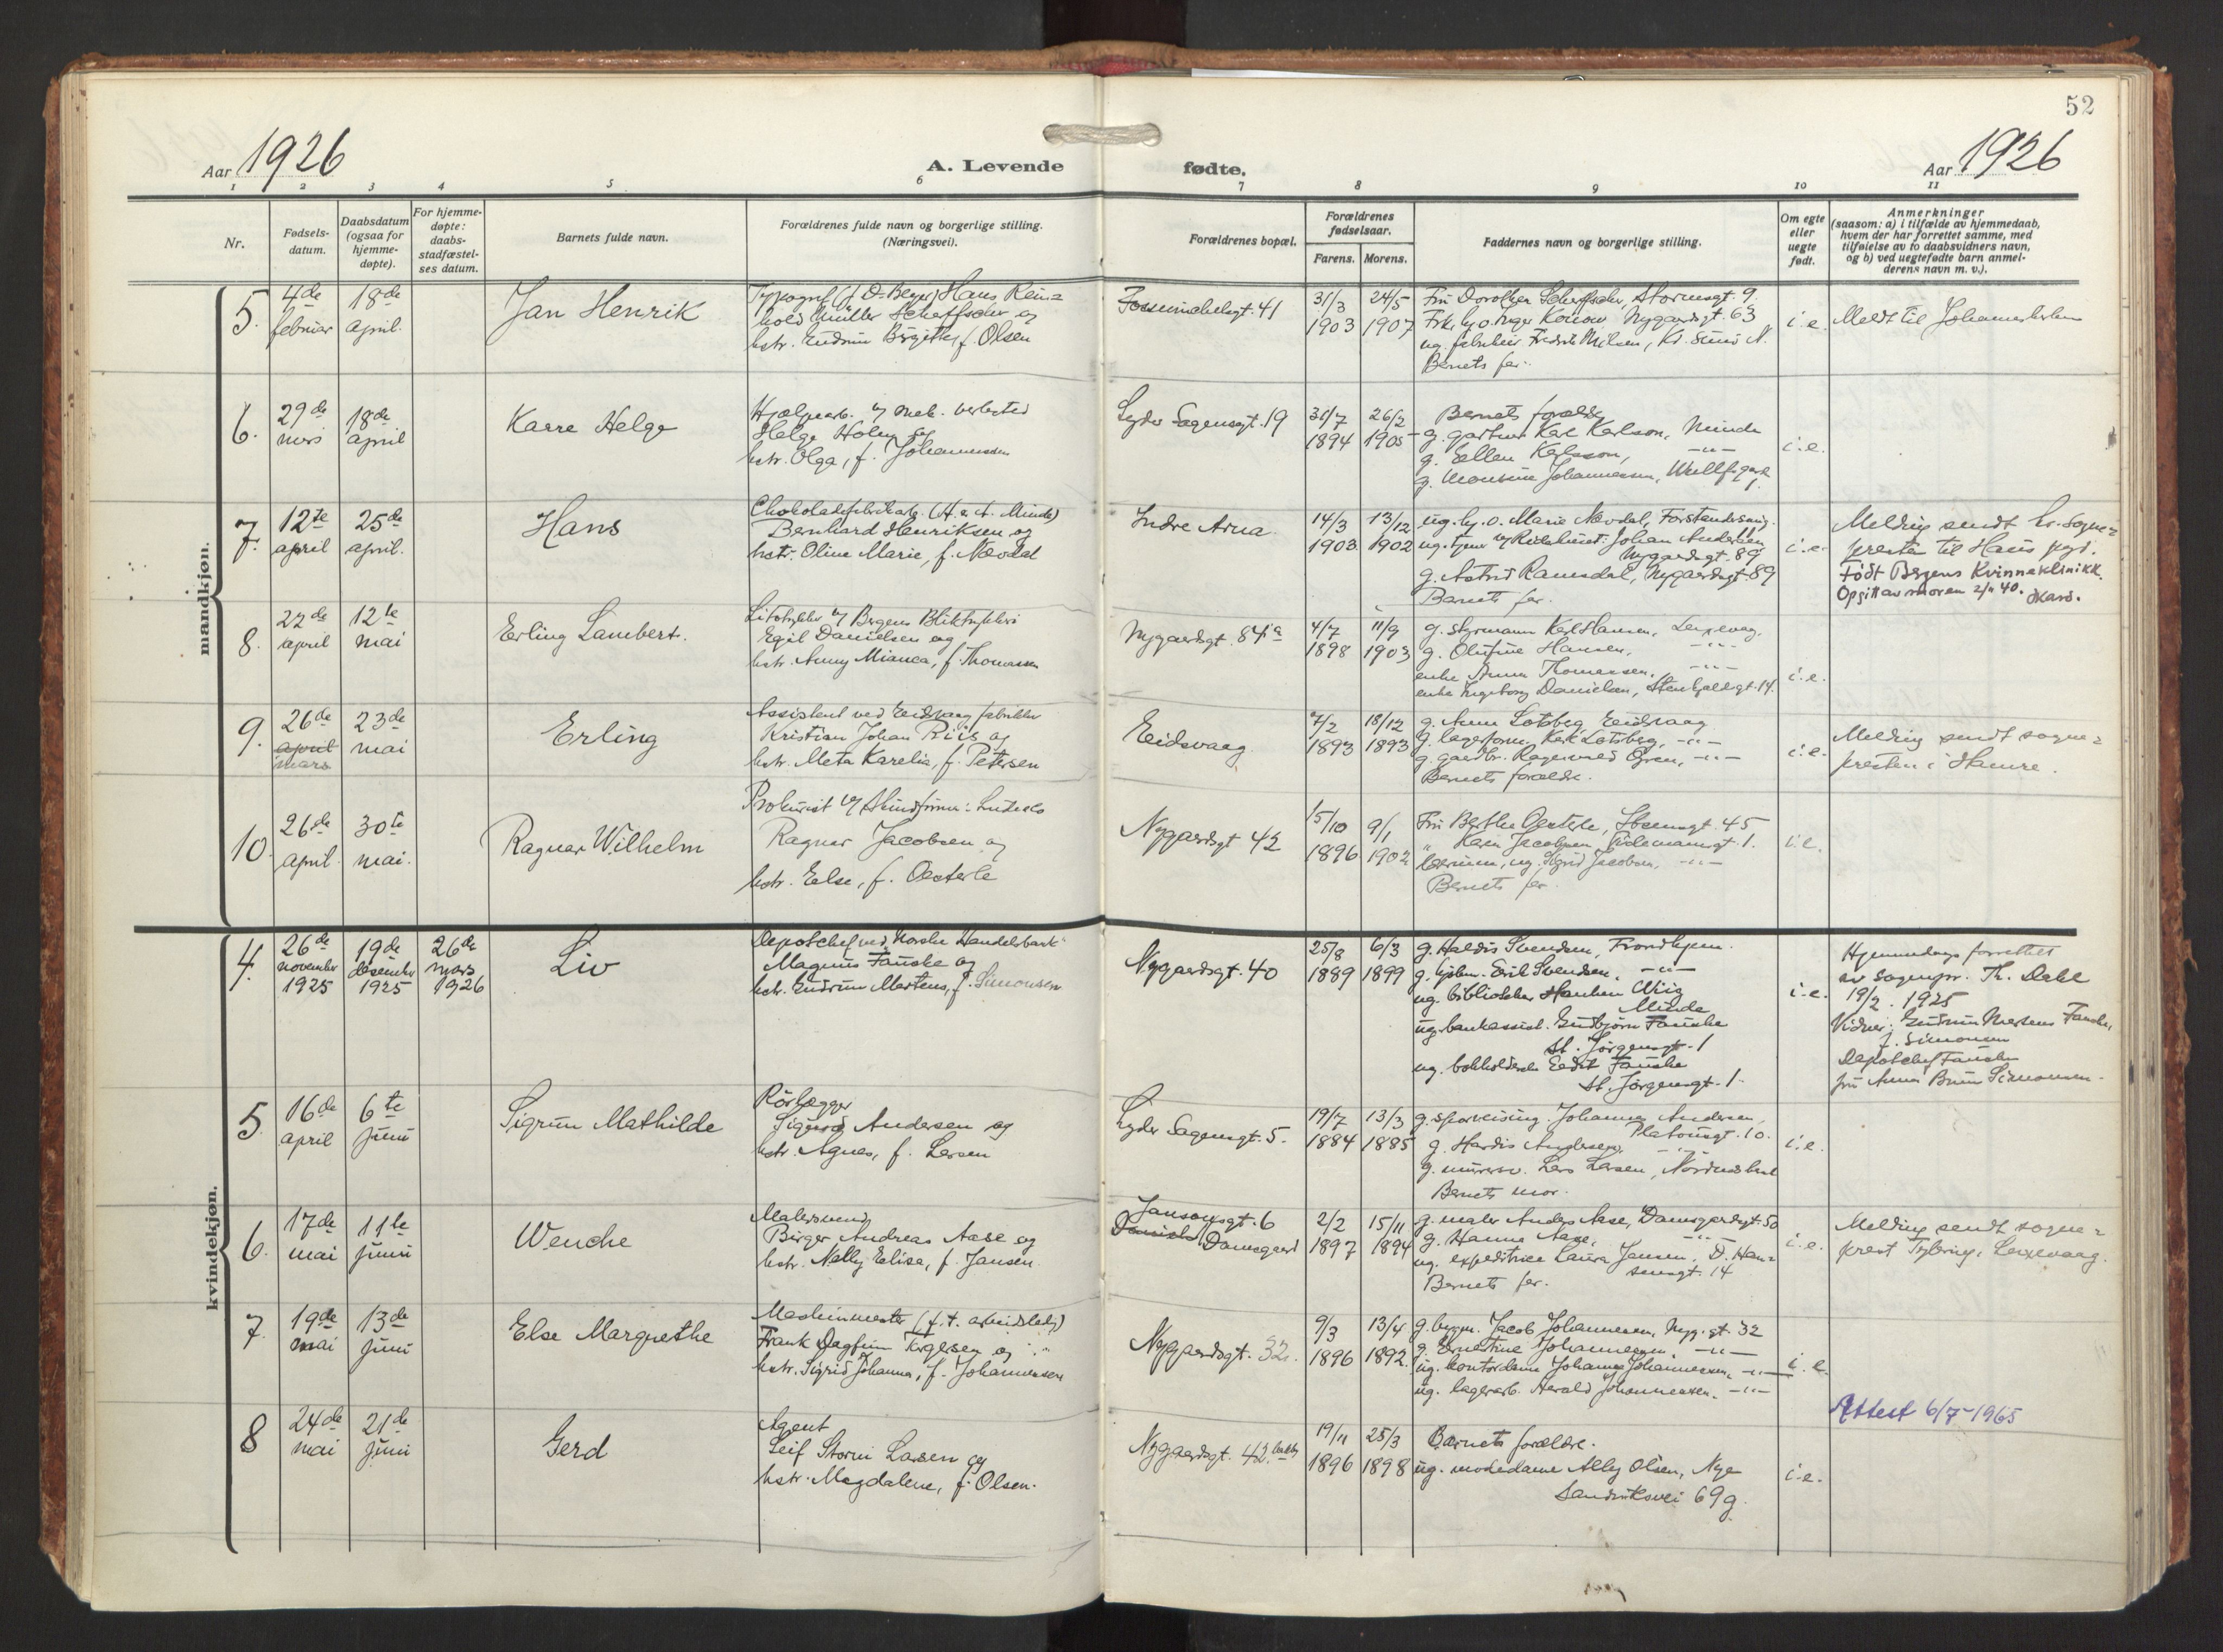 52
Aar 1926
A. Levende fødte.
Aar 1926
1 2 3 4 5 6 7 8 9 10 11
Nr.
Fødsels-
datum.
Daabsdatum
(ogsaa for
hjemme-
døpte).
For hjemme-
døpte:
daabs-
stadfæstel-
ses datum.
Barnets fulde navn.
Forældrenes fulde navn og borgerlige stilling.
(Næringsvei).
Forældrenes bopæl.
Forældrenes
fødselsaar.
Farens. Morens.
Faddernes navn og borgerlige stilling.
Om egte
eller
uegte
født.
Anmerkninger
(saasom: a) i tilfælde av hjemmedaab,
hvem der har forrettet samme, med
tilføielse av to daabsvidners navn,
og b) ved uegtefødte barn anmel-
derens navn m. v.).
mandkjøn.
5.
4de
februar
18de
april.
Jan Henrik
Typograf (J. D. Beyer) Hans Rein=
hold Müller Scheffsder og
hstr. Gudrun Birgitte, f. Olsen
41
31/3
1903
24/5
1907
Fru Dorothea Stormsgt. 9.
Nygaardsgt. 63
Barnets far.
i.e.
Meldt til Johanneskirken
6.
29de
mars
18de
april
Kaare Helge
Hjælpearb. v/ mek. verksted
Helge Holm og
hstr. Olga, f. Johannessen
Lyder Sagensgt. 19
31/7
1894
26/2
1905
Barnets forældre
g. gartner Karl Karlsson, Minde
g. Ellen Karlsson, -"-
g. Johannessen,
i.e.
7.
12te
april
25de
april.
Hans
Chokoladefabrikarb. (Minde)
Bernhard Henriksen og
hstr. Oline Marie, f. Nævdal
Indre Arna
14/3
1903
13/12
1902
ug. hj. o. Marie Nævdal,
Johan Andersen
Nygaardsgt. 89
g. Astrid Ramsdal, Nygaardsgt. 89
Barnets far.
i.e.
Melding sendt hr. sogne=
presten til Haus pgd.
Født Bergens Kvinneklinikk.
Opgitt av moren 2/11 40.
8.
22de
april
12te
mai
Erling Lambert.
v/ Bergens Bliktrykkeri
Egil Danielsen og
hstr. Anny Mianca, f. Thomassen
Nygaardsgt. 84a
4/7
1898
11/9
1903
g. styrmann Karl Hansen, Laxevaag.
g. Olufine Hansen, -"-
enke Anna Thomassen, -"-
enke Ingeborg Danielsen, Stenkjeldergt. 14.
i.e.
9.
26de
april
mars
23de
mai
Erling
Assistent ved Eidsvaag fabrikker
Kristian Johan Riis og
hstr. Meta Karelia, f. Petersen
Eidsvaag
7/2
1893
18/12
1893
g. Anna Lotsberg, Eidsvaag
g. lagerform. Karl Lotsberg, -"-
g. gaardbr. -"-
Barnets forældre.
i.e.
Melding sendt sogne=
presten i Hamre.
10.
26de
april.
30te
mai.
Ragnar Wilhelm
Prokurist v/
Ragnar Jacobsen og
hstr. Else, f. Oesterle
Nygaardsgt 42
15/10
1896
9/1
1902
Fru Berthe Oesterle, Ibsensgt. 45
" Karen Jacobsen, Tidemansgt. 1.
lærerinne, ug. Sigrid Jacobsen, -"-
Barnets far.
i.e.
kvindekjøn.
4.
26de
november
1925
19de
desember
1925
26de
mars
1926
Liv
Depotchef ved Norske Handelsbank
Magnus Fauske og
hstr. Gudrun Mertens, f. Simonsen
Nygaardsgt. 40
25/8
1889
6/3
1899
g. Haldis Svendsen, Trondhjem.
g. kjøbm. Erik Svendsen, -"-
ug. bibliotekar Hanken Wiig
Minde
ug. bankassist. Gudbjørn Fauske
St. Jørgensgt. 1
ug. bokholderske Eedit Fauske
St. Jørgensgt. 1.
i.e.
Hjemmedaap forrettet
av sogenpr. Th. Dahl
19/2. 1925
Vidner: Gudrun Mertens Fauske,
f. Simonsen
Depotchef Fauske
fru Anna Bruun Simonsen.
5.
16de
april
6te
juni
Sigrun Mathilde
Rørlægger
Sigurd Andersen og
hstr. Agnes, f. Larsen
Lyder Sagensgt. 5.
19/7
1884
13/3
1885
g. Johannes Andersen,
Platousgt. 10.
g. Hardis Andersen, -"-
g. Lars Larsen,
Barnets mor.
i.e.
6.
17de
mai
11te
juni
Wenche
Malersvend
Birger Andreas Aase og
hstr. Nelly Elise, f. Jansen.
Jansonsgt. 6
Damsgaard
2/2
1897
15/11
1894
g. maler Anders Aase, Damsgaardsgt. 50
g. Hanna Aase, -"-
ug. expeditrice Laura Jansen, D. Han=
sensgt. 14
Barnets far.
i.e.
Melding sendt sogne=
prest Tybring, Laxevaag.
7.
19de
mai
13de
juni
Else Margrethe
Maskinmester (f.t. arbeidsledig)
Frank Dagfinn Torgersen og
hstr. Sigrid Johanna, f. Johannessen
Nygaardsgt. 32.
9/3
1896
13/4
1892.
g. Jacob Johannessen, Nyg.gt. 32
g. Ernestine Johannessen, -"-
ug. kontordame Johanne Johannessen, -"-
ug. lagerarb. Harald Johannessen. -"-
i.e.
8
24de
mai
21de
juni
Gerd
Agent
Leif Storm Larsen og
hstr. Magdalene, f. Olsen.
Nygaardsgt. 42
19/11
1896
25/3
1898
Barnets forældre.
ug. modedame Ally Olsen, Nye
Sandviksvei 69g.
i.e.
Attest 6/7-1965